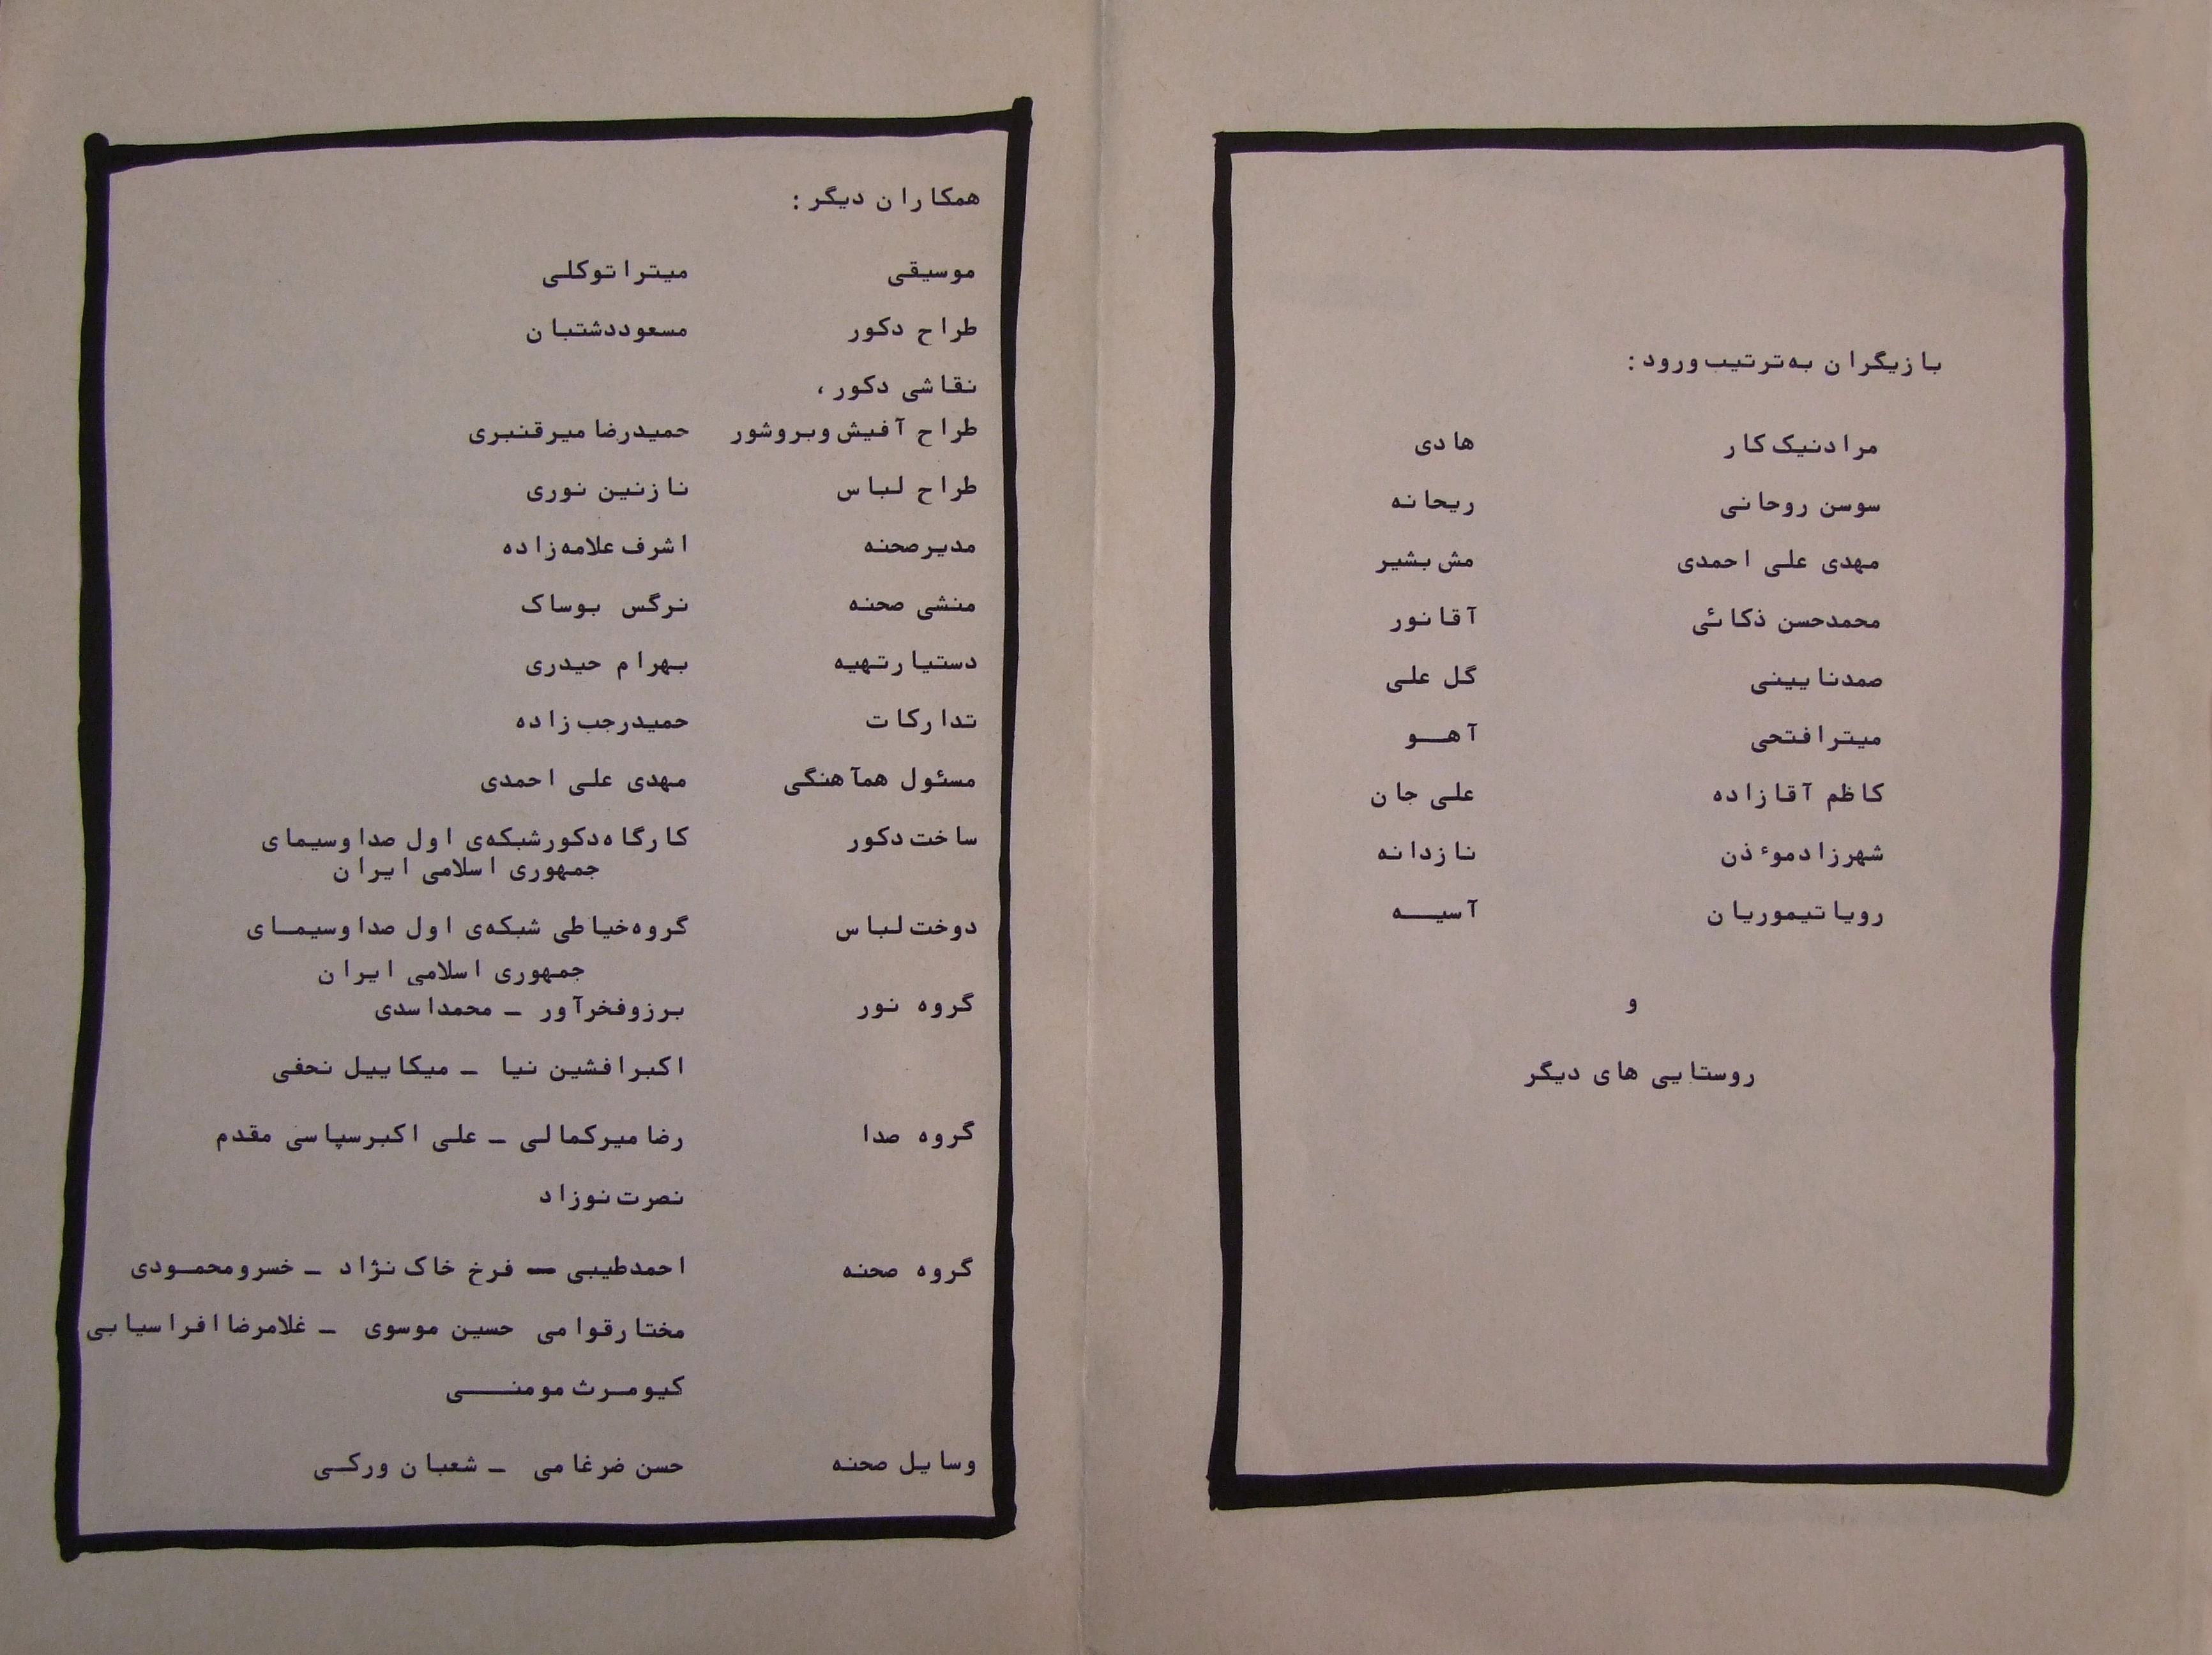 بازیگران به‌ترتیب ورود :
مرادنیک کار هادی
سوسن روحانی ریحانه
مهدی علی احمدی مش بشیر
محمدحسن ذکائی آقانور
صمدنایینی گل علی
میترافتحی آهـو
کاظم آقازاده علی جان
شهرزادموءذن نازدانه
رویاتیموریان آسیـه
و
روستایی های دیگر
همکاران دیگر :
موسیقی میتراتوکلی
طراح دکور مسعوددشتبان
نقاشی دکور ،
طراح آفیش وبروشور حمیدرضا میرقنبری
طراح لباس نازنین نوری
مدیرصحنه اشرف علامه‌زاده
منشی صحنه نرگس بوساک
دستیارتهیه بهرام حیدری
تدارکات حمیدرجب زاده
مسئول همآهنگی مهدی علی احمدی
ساخت دکور کارگاه‌دکورشبکه‌ی اول صداوسیمای
جمهوری اسلامی ایران
دوخت لباس گروه‌خیاطی شبکه‌ی اول صداوسیمـای
جمهوری اسلامی ایران
گروه نور برزوفخرآور ـ محمداسدی
اکبرافشین نیا ـ میکاییل نحفی
گروه صدا رضامیرکمالی ـ علی اکبرسپاسی مقدم
نصرت نوزاد
گروه صحنه احمدطیبی ـ فرخ خاک نژاد ـ خسرومحمـودی
مختارقوامی حسین موسوی ـ غلامرضاافراسیابی
کیومـرث مومنـی
وسایل صحنه حسن ضرغامی ـ شعبان ورکـی